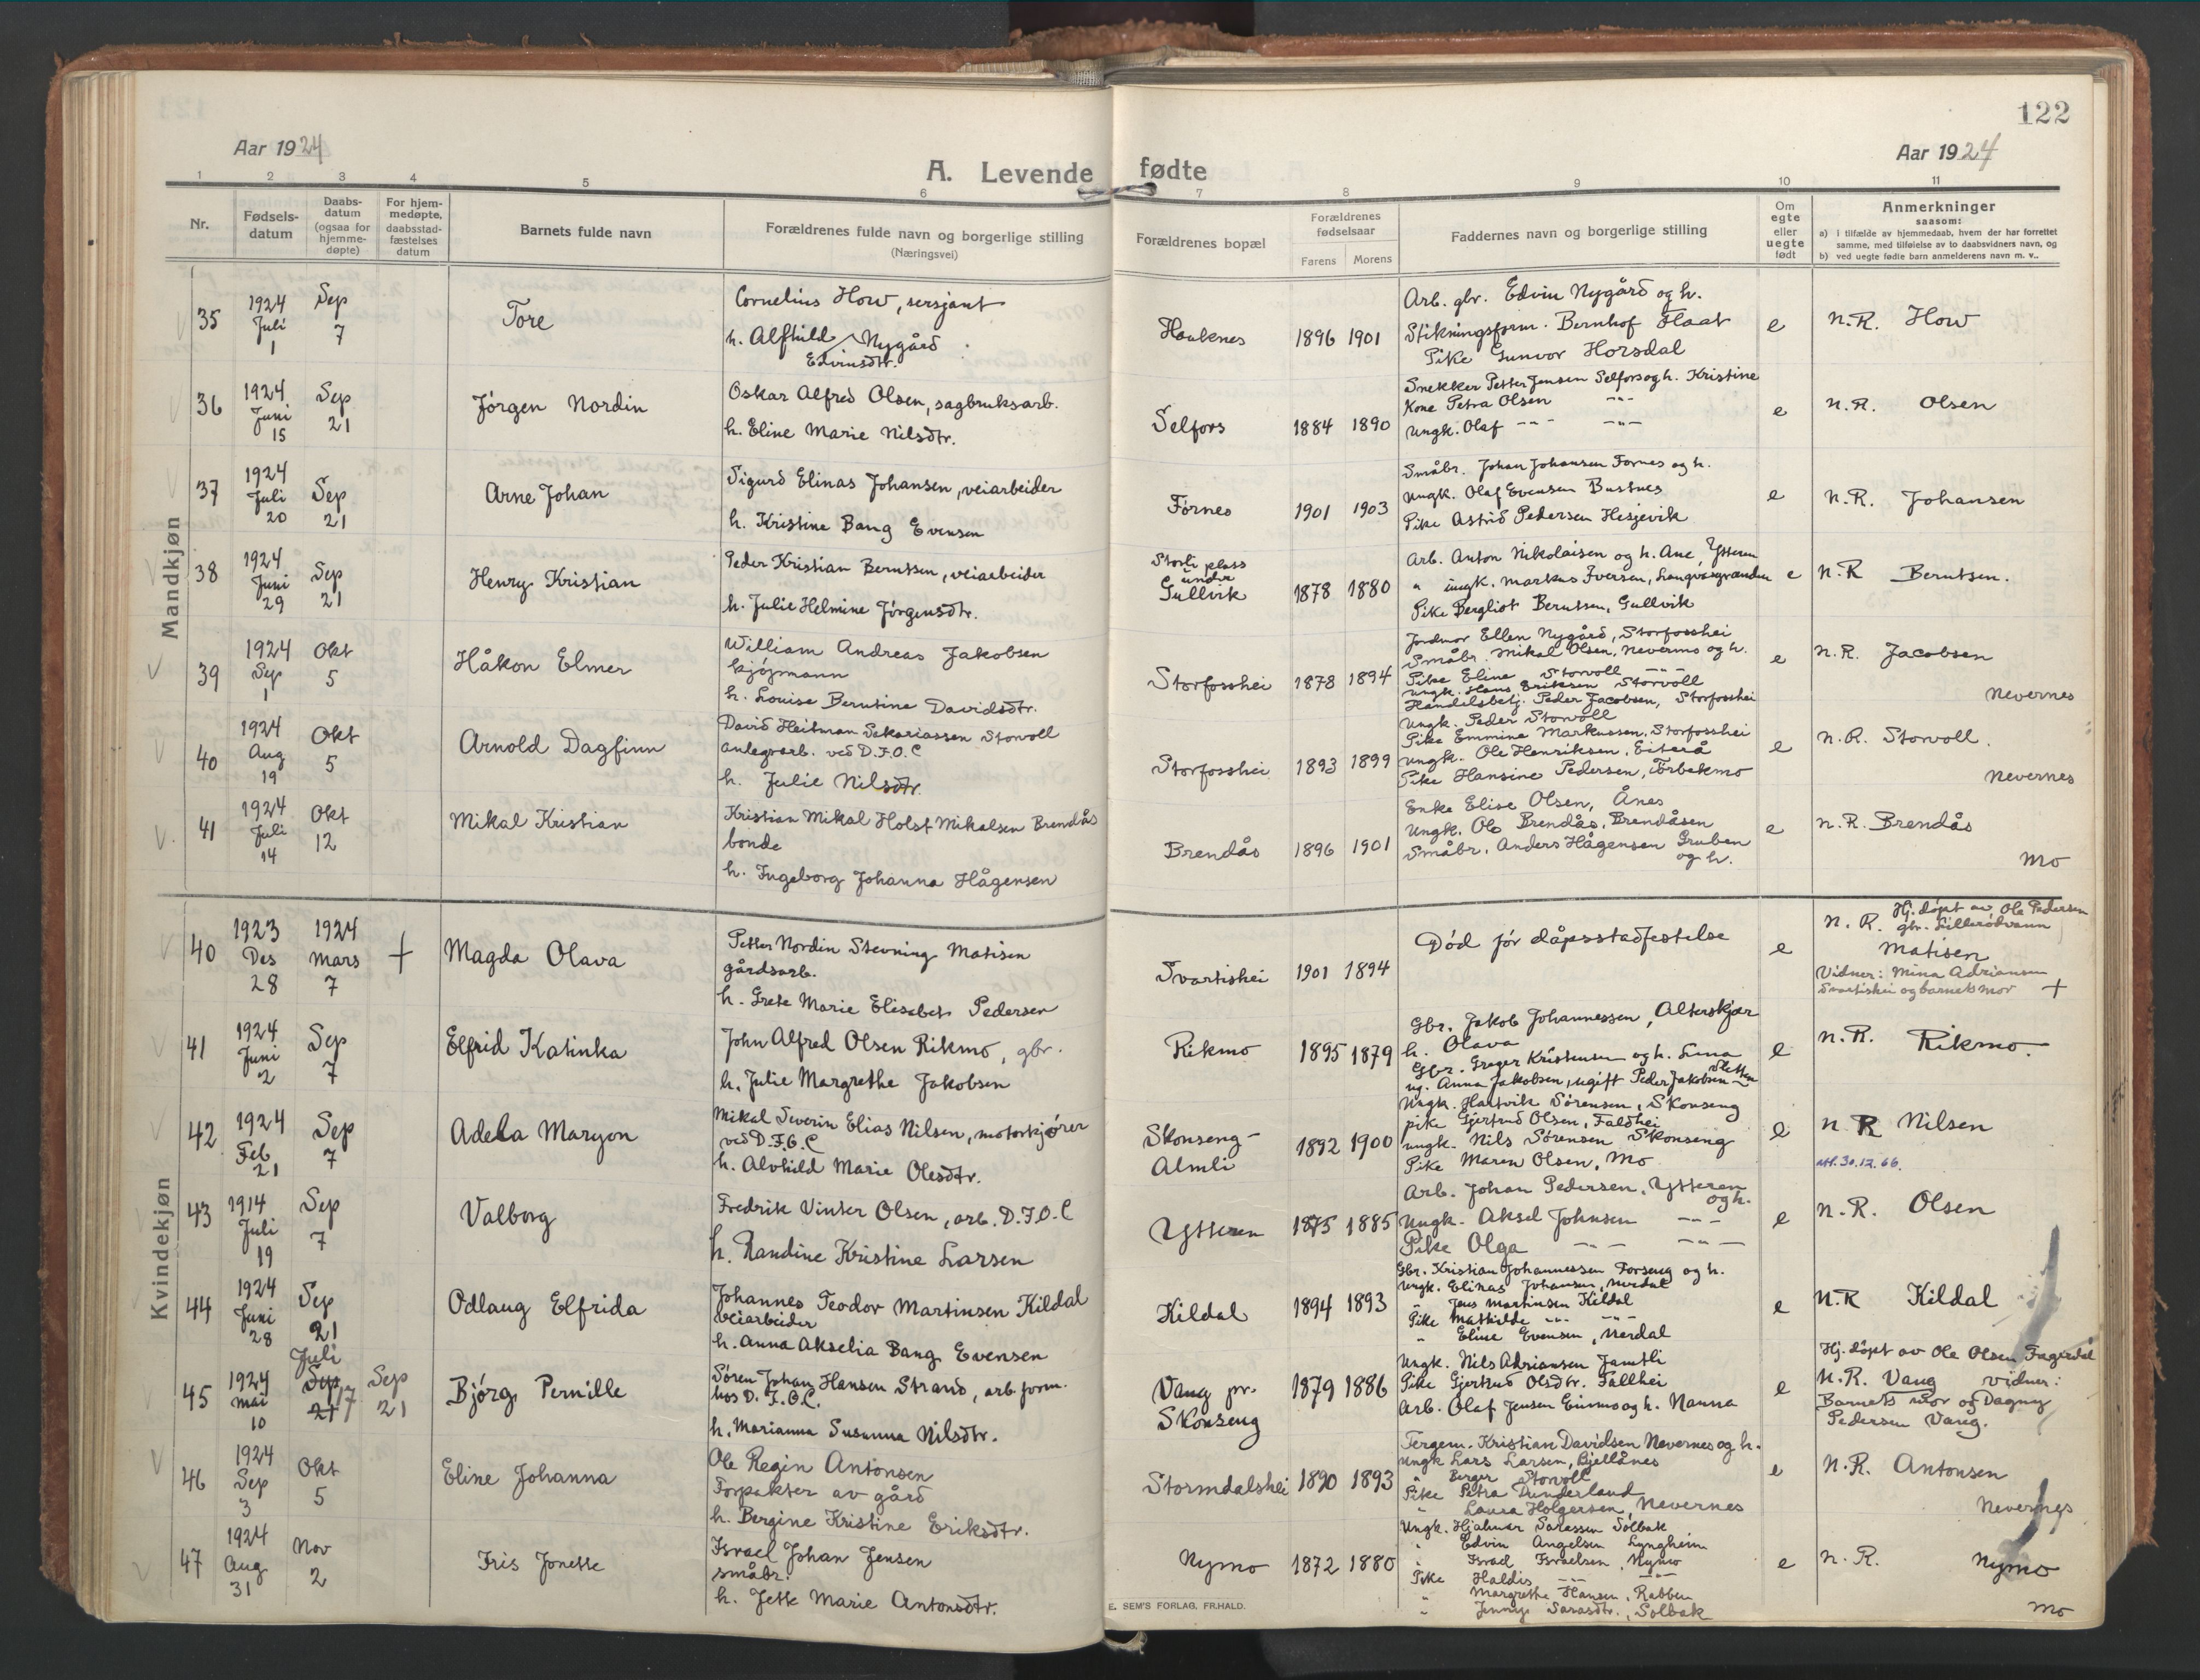 122
Aar 1924
A. Levende fødte
Aar 1924
1 2 3 4 5 6 7 8 9 10 11
Nr.
Fødsels-
datum
Daabs-
datum
(ogsaa for
hjemme-
døpte)
For hjem-
medøpte,
daabsstad-
fæstelses
datum
Barnets fulde navn
Forældrenes fulde navn og borgerlige stilling
(Næringsvei)
Forældrenes bopæl
Forældrenes
fødselsaar
Farens Morens
Faddernes navn og borgerlige stilling
Om
egte
eller
uegte
født
Anmerkninger
saasom:
a) i tilfælde av hjemmedaab, hvem der har forrettet
samme, med tilføielse av to daabsvidners navn, og
b) ved uegte fødte barn anmelderens navn m. v..
Mandkjøn
35
1924
Juli
1
Sep
7
Tore
Cornelius How, sersjant
h. Alfhild Nygård
Edvinsdtr.
Hauknes
1896 1901
Arb. gbr. Edvin Nygård og h.
Stikningsform. Bernhof Flaat
Pike Gunvor Horsdal
e
N.R. How
36
1924
Juni
15
Sep
21
Jørgen Nordin
Oskar Alfred Olsen, sagbruksarb.
h. Eline Marie Nilsdtr.
Selfors
1884 1890
Snekker Petter Jensen Selfors og h. Kristine
Kone Petra Olsen -"-
Ungk. Olaf -"- -"-
e
N.R. Olsen
37
1924
Juli
20
Sep
21
Arne Johan
Sigurd Elinas Johansen, veiarbeider
h. Kristine Bang Evensen
Fornes
1901 1903
Småbr. Johan Johansen Fornes og h.
Ungk. Olaf Evensen Bustnes
Pike Astrid Pedersen Hesjevik
e
N.R. Johansen
38
1924
Juni
29
Sep
21
Henry Kristian
Peder Kristian Berntsen, veiarbeider
h. Julie Helmine Jørgensdtr.
Storli plass
under
Gullvik
1878 1880
Arb. Anton Nikolaisen og h. Ane, Ytteren
" ungk. Markus Iversen, Langvasgrænden
Pike Bergliot Berntsen, Gullvik
e
N.R Berntsen.
39
1924
Sep
1
Okt
5
Håkon Elmer
William Andreas Jakobsen
kjøpmann
h. Louise Berntine Davidsdtr.
Storfosshei
1878 1894
Jordmor Ellen Nygård, Storfosshei
Småbr. Mikal Olsen, Nevernes og h.
Pike Eline Storvoll -"-
Ungk. Hans Eriksen Storvoll
Handelsbetj. Peder Jacobsen, Storfosshei
e
N.R. Jacobsen
Nevernes
40
1924
Aug
19
Okt
5
Arnold Dagfinn
David Heitman Sakariassen Storvoll
anlegsarb. ved D.F.O.C
h. Julie Nilsdtr.
Storfosshei
1893 1899
Ungk. Peder Storvoll
Pike Emmine Markussen, Storfosshei
Ungk. Ole Henriksen, Eiterå
Pike Hansine Pedersen, Forbekmo
e
N.R. Storvoll.
Nevernes
41
1924
Juli
14
Okt
12
Mikal Kristian
Kristian Mikal Holst Mikalsen Brendås
bonde
h. Ingeborg Johanna Hågensen
Brendås
1896 1901
Enke Elise Olsen, Ånes
Ungk. Ole Brendås, Brendåsen
Småbr. Anders Hågensen Gruben
og h.
e
N.R. Brendås
Mo
Kvindekjøn
40
1923
Des
28
1924
Mars
7
+
Magda Olava
Petter Nordin Stevning Matisen
gårdsarb.
h. Grete Marie Elisabet Pedersen
Svartishei
1901 1894
Død før dåpsstadfestelse
e
N.R. Hj.døpt av Ole Pedersen
gbr. Lillerødvann
Matisen
Vidner: Mina Adriansen
Svartishei og barnets mor +
41
1924
Juni
2
Sep
7
Elfrid Katinka
John Alfred Olsen Rikmo, gbr.
h. Julie Margrethe Jakobsen
Rikmo
1895 1879
Gbr. Jakob Johannessen, Alterskjær
h. Olava
Gbr. Greger Kristensen og h. Lina
Sletten
ug. Anna Jakobsen, ugift Peder Jakobsen
e
N.R. Rikmo.
42
1924
Feb
21
Sep
7
Adela Maryon
Mikal Severin Elias Nilsen, motorkjører
ved D.F.O.C
h. Alvhild Marie Olesdtr.
Skonseng-
Almli
1892 1900
Ungk. Hartvik Sørensen, Skonseng
pike Gjertrud Olsen, Faldhei
ungk. Nils Sørensen Skonseng
Pike Maren Olsen, Mo
e
N R Nilsen
att. 30.12.66.
43
1914
Juli
19
Sep
7
Valborg
Fredrik Vinter Olsen, arb. D.F.O.C
h. Randine Kristine Larsen
Ytteren
1875 1885
Arb. Johan Pedersen, Ytteren
og h.
Ungk. Aksel Johnsen -"-
Pike Olga -"- -"-
e
N.R. Olsen
44
1924
Juni
28
Sep
21
Odlaug Elfrida
Johannes Teodor Martinsen Kildal
veiarbeider
h. Anna Akselia Bang Evensen
Kildal
1894 1893
Gbr. Kristian Johannessen Forseng og h.
Ungk. Elinas Johansen, Nerdal
" Jens Martinsen Kildal
Pike Mathilde -"- -"-
" Eline Evensen, Nerdal
e
N.R Kildal
45
1924
Mai
10
Juli
Sep
21 17
Sep
21
Bjørg Pernille
Søren Johan Hansen Strand, arb.form.
hos D.F.O.C.
h. Marianna Susanna Nilsdtr.
Vang pr.
Skonseng
1879 1886
Ungk. Nils Adriansen Jamtli
Pike Gjertrud Olsdtr. Fallhei
Arb. Olaf Jensen Enmo og h. Nanna
e
Hj. døpt av Ole Olsen Fagerdal
N.R. Vang vidner:
Barnets mor og Dagny
Pedersen Vang.
46
1924
Sep
3
Okt
5
Eline Johanna
Ole Regin Antonsen
Forpakter av gård
h. Bergine Kristine Eriksdtr.
Stormdalshei
1890 1893
Kristian Davidsen Nevernes og h.
Ungk Lars Larsen, Bjellånes
" Berger Storvoll
Pike Petra Dunderland
" Laura Holgersen, Nevernes
e
N.R. Antonsen
Nevernes
47
1924
Aug
31
Nov
2
Iris Jonette
Israel Johan Jensen
småbr.
h. Jette Marie Antonsdtr.
Nymo
1872 1880
Ungk. Hjalmar Sarassen Solbak
" Edvin Angelsen Lyngheim
" Israel Israelsen, Nymo
Pike Haldis -"- -"-
" Margrethe Hansen, Rabben
" Jenny Sarasdtr., Solbak
e
N.R. Nymo
Mo
E. SEM'S FORLAG, FR.HALD.